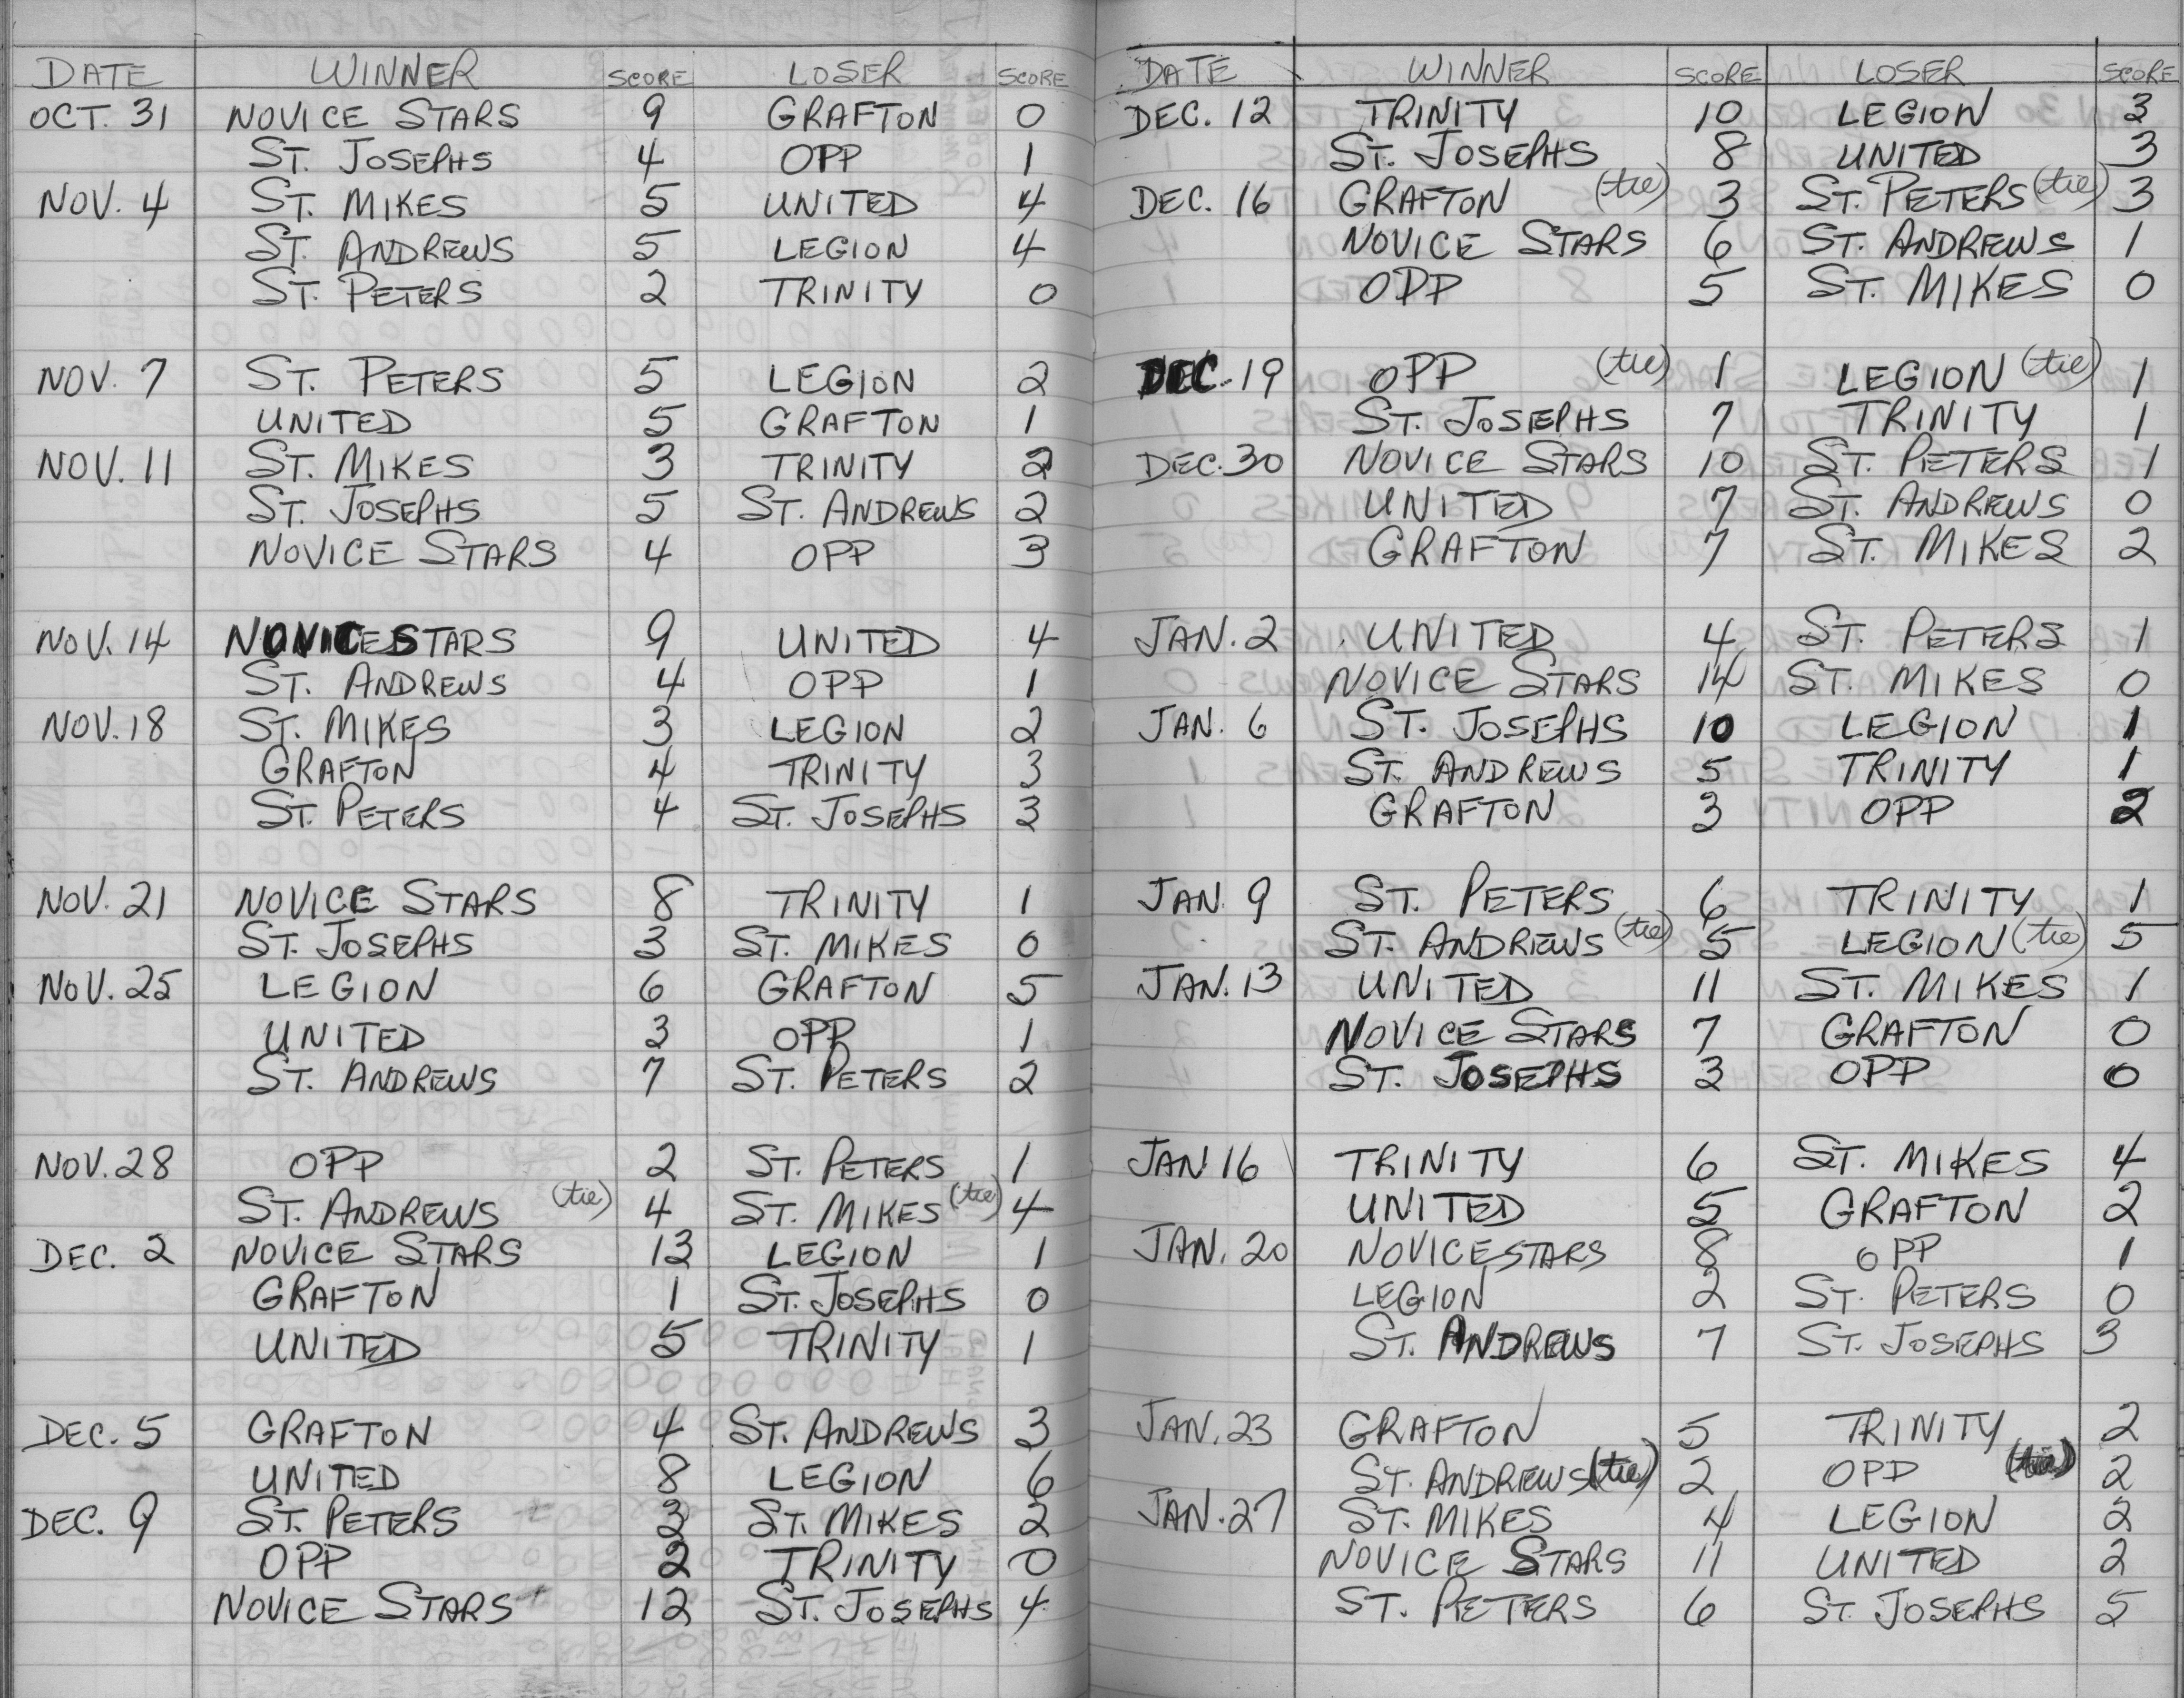 DATE WINNER SCORE LOSER SCORE
OCT. 31 NOVICE STARS 9 GRAFTON 0
ST. JOSEPHS 4 OPP 1
NOV. 4 ST. MIKES 5 UNITED 4
ST. ANDREWS 5 LEGION 4
ST. PETERS 2 TRINITY 0
NOV. 7 ST. PETERS 5 LEGION 2
UNITED 5 GRAFTON 1
NOV. 11 ST. MIKES 3 TRINITY 2
ST. JOSEPHS 5 ST. ANDREWS 2
NOVICE STARS 4 OPP 3
NOV. 14 NOVICE STARS 9 UNITED 4
ST. ANDREWS 4 OPP 1
NOV. 18 ST. MIKES 3 LEGION 2
GRAFTON 4 TRINITY 3
ST. PETERS 4 ST. JOSEPHS 3
NOV. 21 NOVICE STARS 8 TRINITY 1
ST. JOSEPHS 3 ST. MIKES 0
NOV. 25 LEGION 6 GRAFTON 5
UNITED 3 OPP 1
ST. ANDREWS 7 ST. PETERS 2
NOV. 28 OPP 2 ST. PETERS 1
ST. ANDREWS (tie) 4 ST. MIKES (tie) 4
DEC. 2 NOVICE STARS 13 LEGION 1
GRAFTON 1 ST. JOSEPHS 0
UNITED 5 TRINITY 1
DEC. 5 GRAFTON 4 ST. ANDREWS 3
UNITED 8 LEGION 6
DEC. 9 ST. PETERS 3 ST. MIKES 2
OPP 2 TRINITY 0
NOVICE STARS 12 ST. JOSEPHS 4
DATE WINNER SCORE LOSER SCORE
DEC. 12 TRINITY 10 LEGION 3
ST. JOSEPHS 8 UNITED 3
DEC. 16 GRAFTON (tie) 3 ST. PETERS (tie) 3
NOVICE STARS 6 ST. ANDREWS 1
OPP 5 ST. MIKES 0
DEC. 19 OPP (tie) 1 LEGION (tie) 1
ST. JOSEPHS 7 TRINITY 1
DEC. 30 NOVICE STARS 10 ST. PETERS 1
UNITED 7 ST. ANDREWS 0
GRAFTON 7 ST. MIKES 2
JAN. 2 UNITED 4 ST. PETERS 1
NOVICE STARS 14 ST. MIKES 0
JAN. 6 ST. JOSEPHS 10 LEGION 1
ST. ANDREWS 5 TRINITY 1
GRAFTON 3 OPP 2
JAN. 9 ST. PETERS 6 TRINITY 1
ST. ANDREWS (tie) 5 LEGION (tie) 5
JAN. 13 UNITED 11 ST. MIKES 1
NOVICE STARS 7 GRAFTON 0
ST. JOSEPHS 3 OPP 0
JAN 16 TRINITY 6 ST. MIKES 4
UNITED 5 GRAFTON 2
JAN. 20 NOVICE STARS 8 OPP 1
LEGION 2 ST. PETERS 0
ST. ANDREWS 7 ST. JOSEPHS 3
JAN. 23 GRAFTON 5 TRINITY 2
ST. ANDREWS (tie) 2 OPP (tie) 2
JAN. 27 ST. MIKES 4 LEGION 2
NOVICE STARS 11 UNITED 2
ST. PETERS 6 ST. JOSEPHS 5